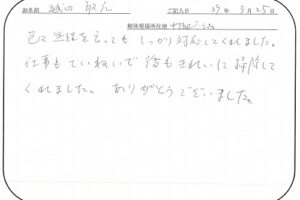 お名前 ご記入日 29年9月25日
解体現場所在地
色々無理を言っても しっかり対応してくれました。
仕事もていねいで 後もきれいに掃除して
くれました。 ありがとうございました。